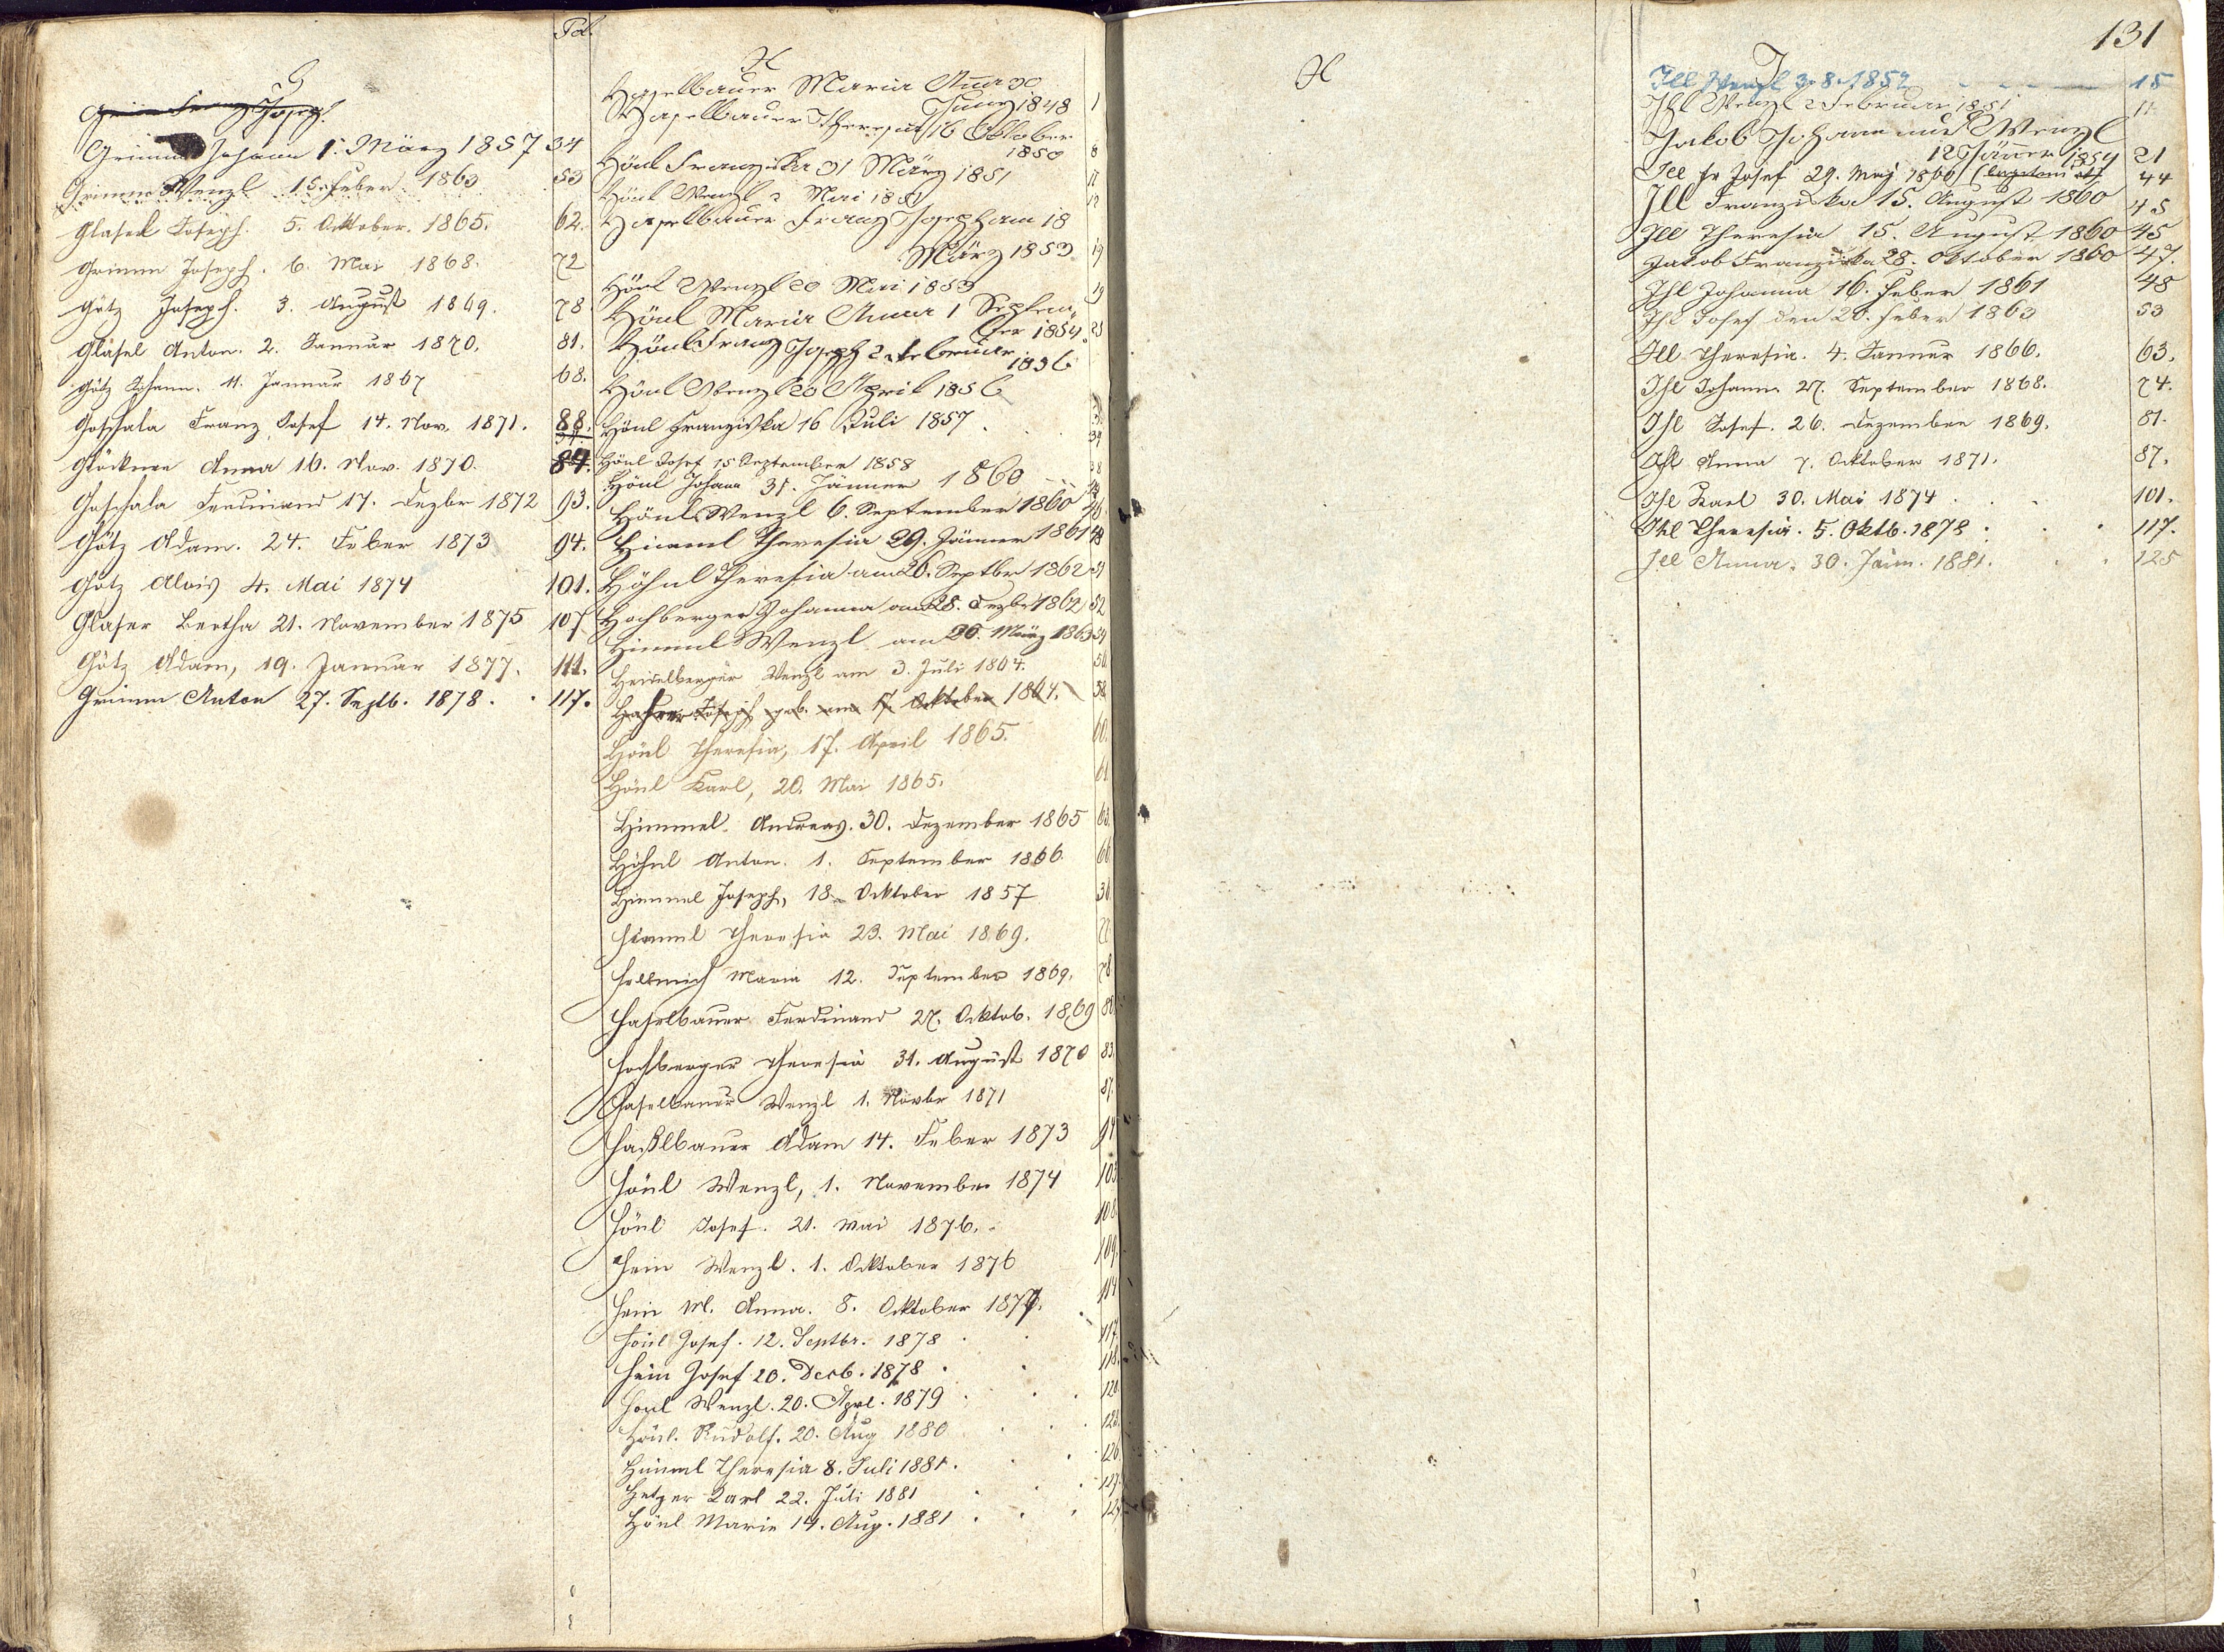 Fol.
G
Grimm Franz Joseph.
Grimm Johann 1. März 1857 34
Grimm Wenzl 15. Feber 1863 53
Glasel Joseph. 5. Oktober. 1865. 62.
Grimm Joseph. 6. Mai 1868. 72
Götz Joseph. 3. August 1869. 78
Gläsel Anton. 2. Januar 1870. 81.
Götz Johann. 11. Januar 1867 68.
Goschala Franz Josef 14. Nov. 1871. 88.
Glöckner Anna 16. Nov. 1870. 84.
Goschala Ferdinand 17. Dezbr 1872 93.
Götz Adam. 24. Feber 1873 94.
Götz Alois 4. Mai 1874 101.
Glaser Bertha 21. November 1875 107
Götz Adam, 19. Januar 1877. 111.
Grimm Anton 27. Septb. 1878. 117.
H
Haselbauer Maria Anna 30
Juny 1848 1
Haselbauer Theresia 16 Oktober
1850 8
Hönl Franziska 31 März 1851
Hönl Wenzl 2 Mai 1851 12
Haselbauer Franz Joseph am 18
März 1853 19
Hönl Wenzl 20 Mai 1853 19
Hönl Maria Anna 1 Septem-
ber 1854.
Hönl Franz Joseph 2 Februar
1856
Hönl Wenzl 20 April 1856
Hönl Franziska 16 Juli 1857
Hönl Josef 15 September 1858
Hönl Johann 31. Jänner 1860
Hönl Wenzl 6. September 1860 46
Himml Theresia 29. Jänner 1861 48
Höhnl Theresia am 26. Septber 1862 51
Hochberger Johanna am 28. Dezbr 1862 52
Himml Wenzl am 26. März 1863 54
Heidelberger Wenzl am 3. Juli 1864. 56.
Joseph geb. am 17. Oktober 1864. 58.
Hönl Theresia, 17. April 1865. 60.
Hönl Karl, 20. Mai 1865. 61
Himmel Andreas. 30. Dezember 1865 63.
Höhnl Anton. 1. September 1866. 66
Himmel Joseph, 18. Oktober 1857 36
Himml Theresia 23. Mai 1869.
Hellmich Maria 12. September 1869. 78
Haselbauer Ferdinand 27. Oktob. 1869 80
Hochberger Theresia 31. August 1870 83
Haselbauer Wenzl 1. Novbr 1871 87.
Haßlbauer Adam 14. Feber 1873 94
Hönl Wenzl, 1. November 1874 103
Hönl Josef. 21. Mai 1876. 108
Hein Wenzl. 1. Oktober 1876 109.
Hein M. Anna. 8. Oktober 1877. 114
Hönl Josef. 12. Septbr. 1878 117.
Hein Josef 20. Dezb. 1878 118.
Hönl Wenzl. 20. Aprl. 1879 120.
Hönl. Rudolf. 20. Aug 1880
Himml Theresia 8. Juli 1881. 126
Hetzer Karl 22. Juli 1881 127.
Hönl Marie 14. Aug. 1881
H
131
J
Ill Wenzl 3.8.1852 15
Ihl Wenzl 2 Februar 1851 11
Jakob Johann und Wenzl
12 Jänner 1854 21
Ill Fr Josef 29. May 1860 44
Ill Franziska 15. August 1860 45
Ill Theresia 15. August 1860 45
Jakob Franziska 28. Oktober 1860 47.
Ihl Johanna 16. Feber 1861 48
Ihl Josef den 20. Feber 1863 53
Ill Theresia. 4. Jannar 1866. 63.
Ihl Johann 27. September 1868. 74.
Ihl Josef. 26. Dezember 1869. 81.
Ihl Anna 7. Oktober 1871. 87.
Ihl Karl 30. Mai 1874 101.
Ihl Theresia. 5. Oktb. 1878 117.
Ill Anna. 30. Jänn. 1881. 125